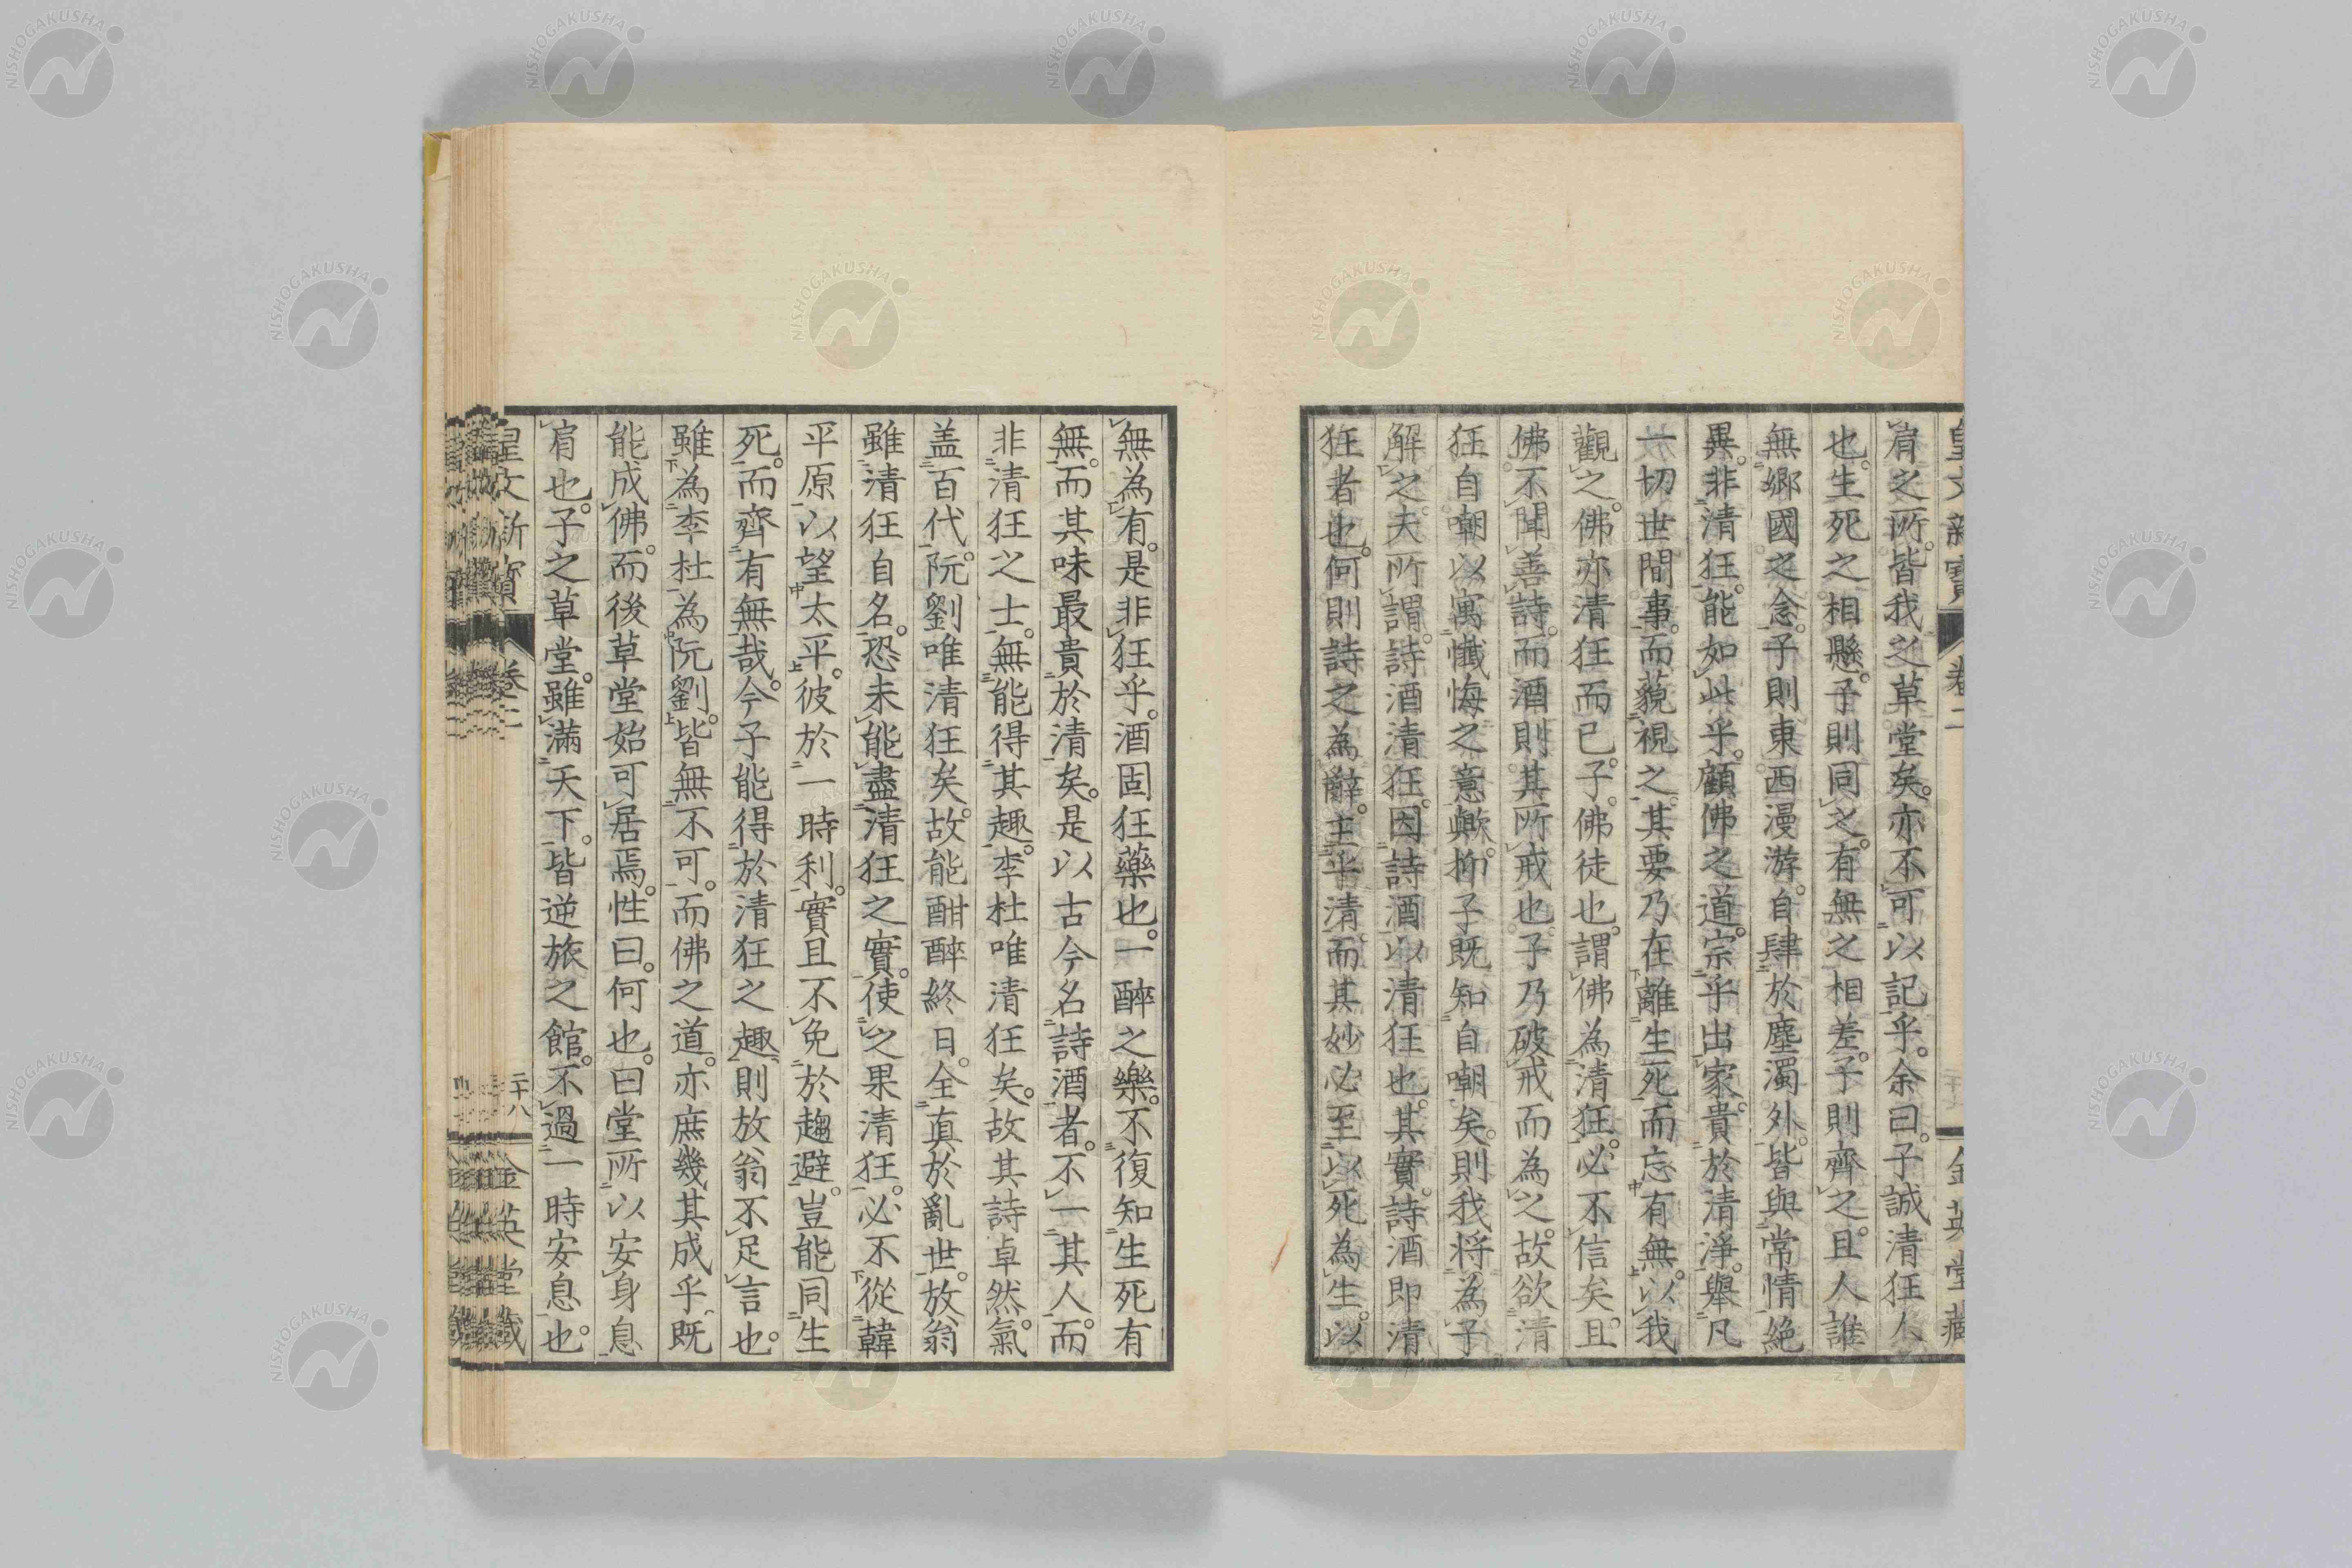 皇文新寶 卷二 金英堂藏
肩之所皆我之草堂矣。亦不可以記乎。余曰。子誠清狂人
也。生死之相懸。子則同之。有無之相差。子則齊之。且人誰
無鄉國之念。子則東西漫游。自肆於塵濁外。皆與常情絕
異。非清狂。能如此乎。顧佛之道。宗乎出家。貴於清淨。舉凡
一切世間事。而藐視之。其要乃在離生死而忘有無。以我
觀之。佛亦清狂而已。子。佛徒也。謂佛為清狂。必不信矣。且
佛不聞善詩。而酒則其所戒也。子乃破戒而為之。故欲清
狂自嘲以寓懺悔之意歟。抑子既知自嘲矣。則我將為子
解之。夫所謂詩酒清狂。因詩酒以清狂也。其實。詩酒即清
狂者也。何則詩之為辭。主乎清。而其妙必至以死為生。以
無為有。是非狂乎。酒固狂藥也。一醉之樂。不復知生死有
無。而其味最貴於清矣。是以古今名詩酒者。不一其人。而
非清狂之士。無能得其趣。李杜唯清狂矣。故其詩卓然。氣
盖百代。阮劉唯清狂矣。故能酣醉終日。全真於亂世。放翁
雖清狂自名。恐未能盡清狂之實。使之果清狂。必不從韓
平原以望太平。彼於一時利。實且不免於趨避。豈能同生
死。而齊有無哉。今子能得於清狂之趣、則放翁不足言也。
雖為李杜為阮劉。皆無不可。而佛之道。亦庶幾其成乎。既
能成佛。而後草堂始可居焉。性曰。何也。曰堂所以安身息
肩也。子之草堂。雖滿天下。皆逆旅之館。不過一時安息也。
皇文新寶 卷二 二十八 金英堂藏
NISHOGAKUSHA